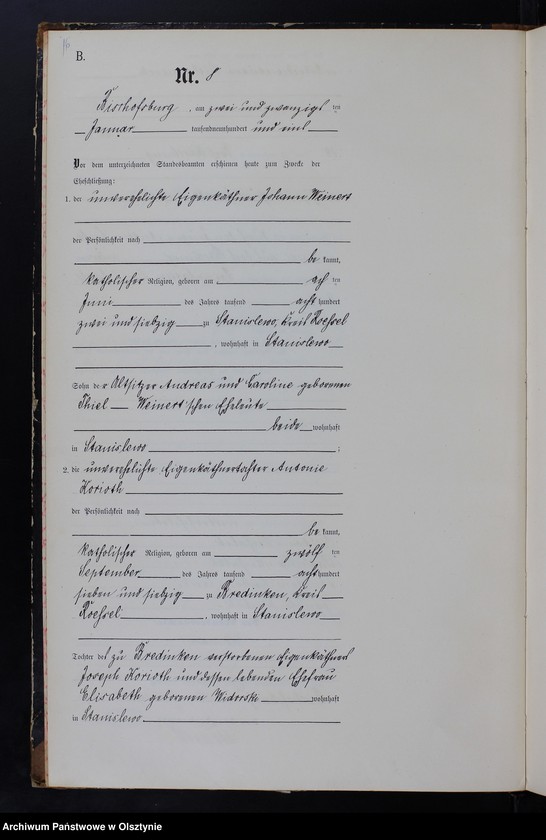 16
B.
Nr. 8
Bischofsburg, am zwei und zwanzigsten
Januar tausendneunhundert und
Vor dem unterzeichneten Standesbeamten erschienen heute zum Zwecke der
Eheschließung:
1. der unverehelichte Eigenkäthner Johann Weinert
der Persönlichkeit nach
be kannt,
katholischer Religion, geboren am ten
Juni des Jahres tausend acht hundert
zwei und siebzig zu Stanislewo, Kreis Roessel
, wohnhaft in Stanislewo
Sohn der Altsitzer Andreas und Caroline geborenen
Thiel Weinert'schen Eheleute
beide wohnhaft
in Stanislewo ;
2. die unverehelichte Eigenkäthnertochter Antonie
Korioth
der Persönlichkeit nach
be kannt,
katholischer Religion, geboren am zwölf ten
September des Jahres tausend acht hundert
sieben und siebzig zu Bredinken, Kreis
Roessel , wohnhaft in Stanislewo
Tochter des zu Bredinken verstorbenen Eigenkäthners
Joseph Korioth und dessen lebenden Ehefrau
Elisabeth geborenen wohnhaft
in Stanislewo
Archiwum Państwowe w Olsztynie